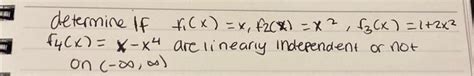 determine if f₁(x) = x, f₂(x) = x², f₃(x) = 1+2x²
f₄(x) = x - x⁴ are linearly independent or not
on (-∞, ∞)